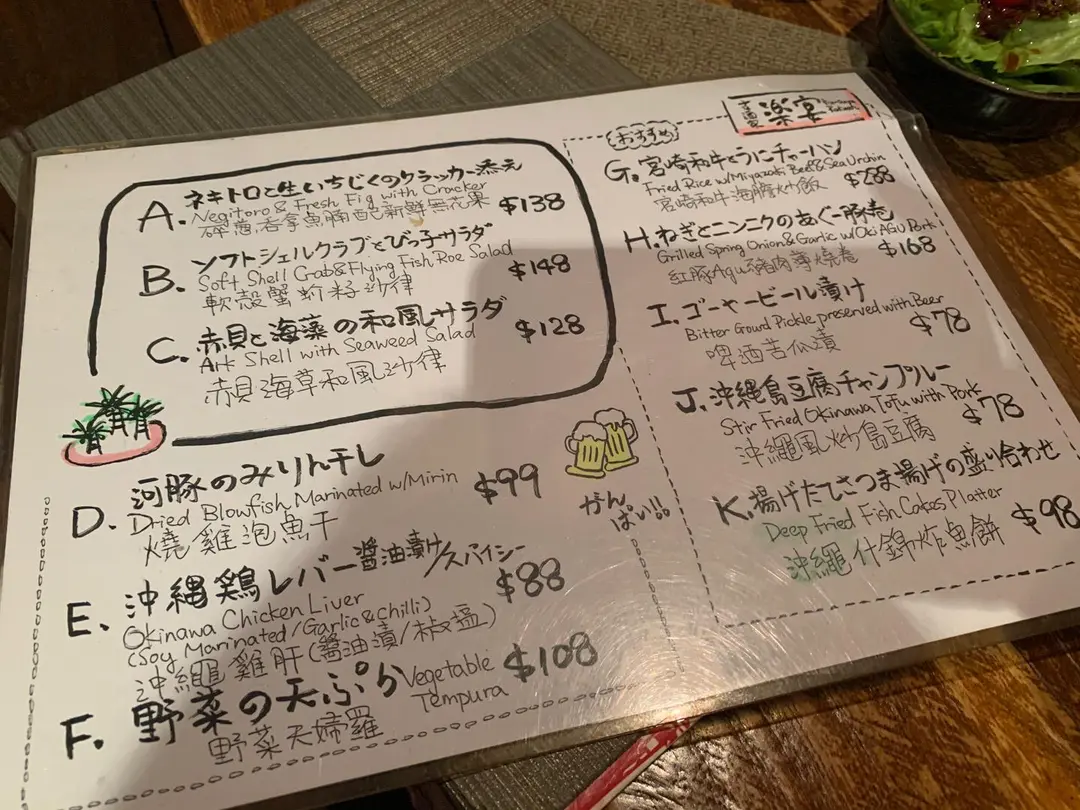 ネギトロと生いちじくのクラッカー添え
A. Negitoro & Fresh Fig with Cracker $138
碎蔥吞拿魚腩配新鮮無花果
ソフトシェルクラブとびっ子サラダ
B. Soft Shell Crab & Flying Fish Roe Salad $148
軟殼蟹魪籽沙律
C. 赤貝と海藻の和風サラダ $128
Ark Shell with Seaweed Salad
赤貝海草和風沙律
河豚のみりん干し
D. Dried Blowfish Marinated w/Mirin $99
燒雞泡魚干
E. 沖縄鶏レバー醤油漬け/スパイシー
Okinawa Chicken Liver $88
(Soy Marinated/Garlic & Chilli)
沖繩雞肝(醬油漬/椒鹽)
F. 野菜の天ぷら Vegetable Tempura $108
野菜天婦羅
がんぱい!!
楽宴
おすすめ
G. 宮崎和牛とうにチャーハン
Fried Rice w/Miyazaki Beef & Sea Urchin $288
宮崎和牛海膽炒飯
H. ねぎとニンニクのあぐー豚巻
Grilled Spring Onion & Garlic w/Oki AGU Pork $168
紅豚Agu豬肉蓴燒卷
I. ゴーヤービール漬け
Bitter Gourd Pickle preserved with Beer $78
啤酒苦瓜漬
J. 沖縄島豆腐チャンプルー
Stir Fried Okinawa Tofu with Pork $78
沖繩風炒島豆腐
K. 揚げたてさつま揚げの盛り合わせ
Deep Fried Fish Cakes Platter $98
沖繩什錦炸魚餅